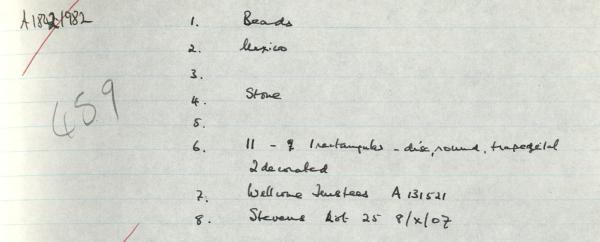 A18 1982
1. Beads
2. Mexico
3.
4. Stone
459
5.
6. 11 - 9 1 rectangular - disc, round, trapezital
2 decorated
7. Wellcome Trustees A 131521
8. Stevens Lot 25 8/x/07